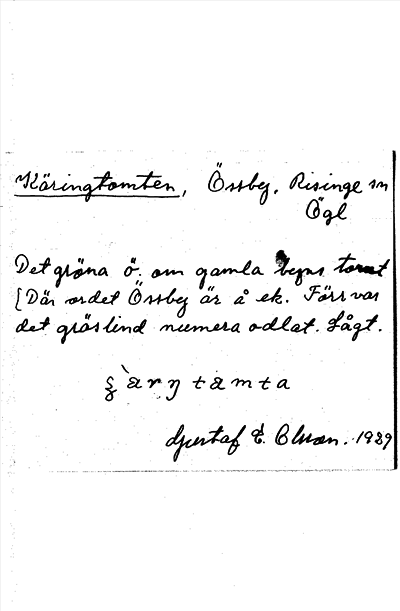 Käringtomten, Össby, Risinge sn
Ögl
Det gröna ö. om gamla byns tomt
[Där ordet Össby är å ek. Förr var
det gräslind numera odlat. Lågt.
ärŋtamta
Gustaf E. Olsson. 1939